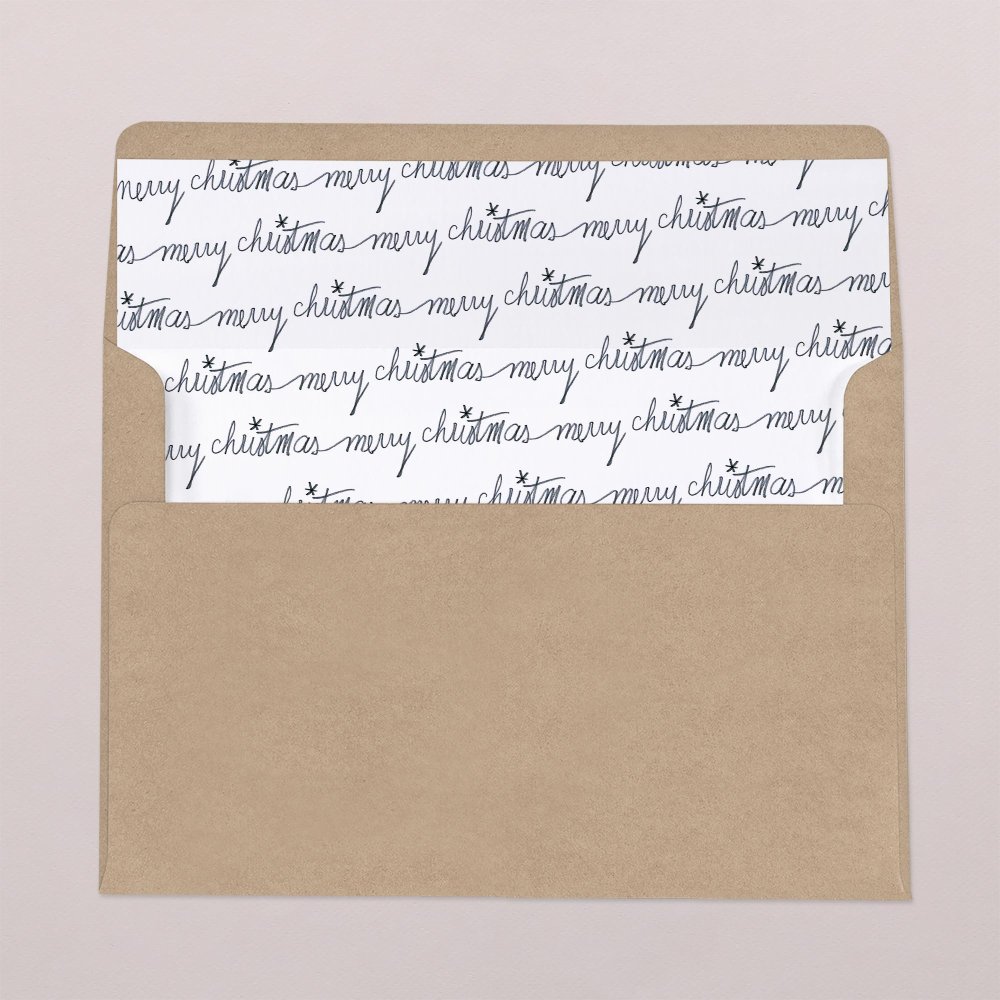 merry christmas merry christmas merry christmas me
as merry christmas merry christmas merry ch
istmas merry christmas merry christmas merry
christmas merry christmas merry christmas merry christma
rry christmas merry christmas merry christmas merry
christmas merry christmas merry christmas m